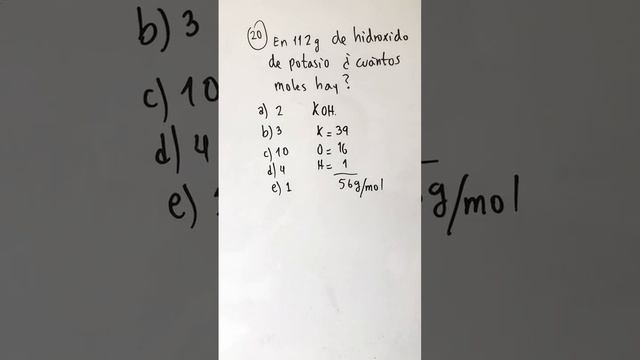 20 En 112g de hidroxido
de potasio ¿ cuántos
moles hay?
a) 2 KOH
b) 3 K = 39
c) 10 O = 16
d) 4 H = 1
e) 1 56g/mol
b) 3
c) 10
d) 4
e)
g/mol